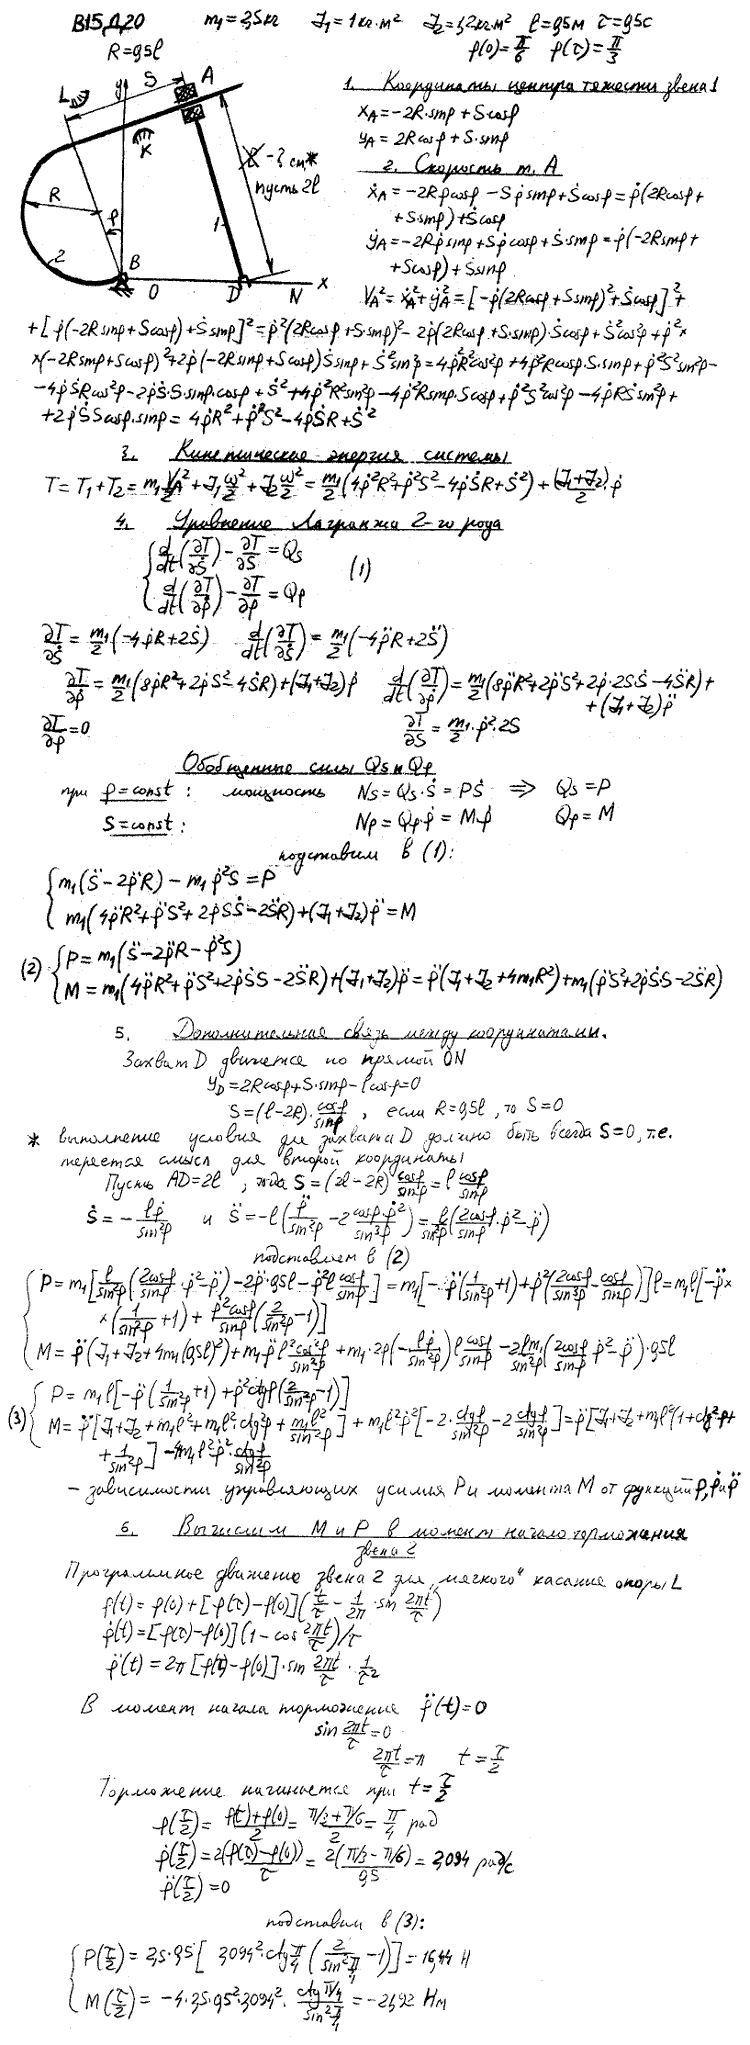 В15, Д20 m₁ = 2,5 кг J₁ = 1 кг·м² J₂ = 1,2 кг·м² l = 0,5 м τ = 0,5 с
R = 0,5l φ(0) = π/6 φ(τ) = π/3
y S A
L
K
R φ 1 2 B O D N x
пусть 2l
1. Координаты центра тяжести звена 1
x_A = -2R·sinφ + S cosφ
y_A = 2R cosφ + S·sinφ
2. Скорость т. A
ẋ_A = -2Rφ̇cosφ - Sφ̇sinφ + Ṡcosφ = φ̇(2Rcosφ +
+ S sinφ) + Ṡcosφ
ẏ_A = -2Rφ̇sinφ + Sφ̇cosφ + Ṡ·sinφ = φ̇(-2Rsinφ +
+ Scosφ) + Ṡsinφ
V_A² = ẋ_A² + ẏ_A² = [-φ̇(2Rcosφ + S sinφ) + Ṡcosφ]² +
+ [φ̇(-2R sinφ + S cosφ) + Ṡ sinφ]² = φ̇²(2Rcosφ + S·sinφ)² - 2φ̇(2Rcosφ + S·sinφ)·Ṡcosφ + Ṡ²cos²φ + φ̇²×
×(-2Rsinφ + Scosφ)² + 2φ̇(-2Rsinφ + Scosφ)Ṡsinφ + Ṡ²sin²φ = 4φ̇²R²cos²φ + 4φ̇²Rcosφ·S·sinφ + φ̇²S²sin²φ -
- 4φ̇ṠRcos²φ - 2φ̇Ṡ·S·sinφ·cosφ + Ṡ² + 4φ̇²R²sin²φ - 4φ̇²Rsinφ·Scosφ + φ̇²S²cos²φ - 4φ̇RṠsin²φ +
+ 2φ̇ṠScosφ·sinφ = 4φ̇R² + φ̇²S² - 4φ̇ṠR + Ṡ²
3. Кинетическая энергия системы
T = T₁ + T₂ = m₁V_A²/2 + J₁ω²/2 + J₂ω²/2 = m₁/2(4φ̇²R² + φ̇²S² - 4φ̇ṠR + Ṡ²) + (J₁+J₂)/2·φ̇
4. Уравнение Лагранжа 2-го рода
d/dt(∂T/∂Ṡ) - ∂T/∂S = Q_S
(1)
d/dt(∂T/∂φ̇) - ∂T/∂φ = Q_φ
∂T/∂Ṡ = m₁/2(-4φ̇R + 2Ṡ) d/dt(∂T/∂Ṡ) = m₁/2(-4φ̈R + 2S̈)
∂T/∂φ̇ = m₁/2(8φ̇R² + 2φ̇S² - 4ṠR) + (J₁+J₂)φ̇ d/dt(∂T/∂φ̇) = m₁/2(8φ̈R² + 2φ̈S² + 2φ̇·2SṠ - 4S̈R) +
+ (J₁+J₂)φ̈
∂T/∂φ = 0 ∂T/∂S = m₁/2·φ̇²·2S
Обобщенные силы Q_S и Q_φ
при φ = const: мощность N_S = Q_S·Ṡ = PṠ ⇒ Q_S = P
S = const: N_φ = Q_φ·φ̇ = M·φ̇ Q_φ = M
подставим в (1):
m₁(S̈ - 2φ̈R) - m₁φ̇²S = P
m₁(4φ̈R² + φ̈S² + 2φ̇SṠ - 2S̈R) + (J₁+J₂)φ̈ = M
(2) P = m₁(S̈ - 2φ̈R - φ̇²S)
M = m₁(4φ̈R² + φ̈S² + 2φ̇ṠS - 2S̈R) + (J₁+J₂)φ̈ = φ̈(J₁ + J₂ + 4m₁R²) + m₁(φ̈S² + 2φ̇ṠS - 2S̈R)
5. Дополнительная связь между координатами.
Захват D движется по прямой ON
y_D = 2Rcosφ + S·sinφ - l cosφ = 0
S = (l - 2R)·cosφ/sinφ, если R = 0,5l, то S = 0
* выполнение условия для захвата D должно быть всегда S = 0, т.е.
теряется смысл для второй координаты
Пусть AD = 2l, тогда S = (2l - 2R) cosφ/sinφ = l cosφ/sinφ
Ṡ = -lφ̇/sin²φ и S̈ = -l(φ̈/sin²φ - 2cosφ·φ̇²/sin³φ) = l/sin²φ(2cosφ/sinφ·φ̇² - φ̈)
подставляем в (2)
P = m₁[l/sin²φ(2cosφ/sinφ·φ̇² - φ̈) - 2φ̈·0,5l - φ̇²l cosφ/sinφ] = m₁[-φ̈(1/sin²φ + 1) + φ̇²(2cosφ/sin³φ - cosφ/sinφ)]l = m₁l[-φ̈×
×(1/sin²φ + 1) + φ̇²cosφ/sinφ(2/sin²φ - 1)]
M = φ̈(J₁ + J₂ + 4m₁(0,5l)²) + m₁φ̈l²cos²φ/sin²φ + m₁·2φ̇(-lφ̇/sin²φ)l cosφ/sinφ - 2lm₁/sin²φ(2cosφ/sinφ φ̇² - φ̈)·0,5l
(3) P = m₁l[-φ̈(1/sin²φ + 1) + φ̇²ctgφ(2/sin²φ - 1)]
M = φ̈[J₁ + J₂ + m₁l² + m₁l²·ctg²φ + m₁l²/sin²φ] + m₁l²φ̇²[-2·ctgφ/sin²φ - 2ctgφ/sin²φ] = φ̈[J₁ + J₂ + m₁l²(1 + ctg²φ +
+ 1/sin²φ] - 4m₁l²φ̇²·ctgφ/sin²φ
- зависимости управляющих усилия P и момента M от функций φ, φ̇ и φ̈
6. Вычислим M и P в момент начало торможения
звена 2
Программное движение звена 2 для "мягкого" касание опоры L
φ(t) = φ(0) + [φ(τ) - φ(0)](t/τ - 1/2π·sin 2πt/τ)
φ̇(t) = [φ(τ) - φ(0)](1 - cos 2πt/τ)/τ
φ̈(t) = 2π[φ(τ) - φ(0)]·sin 2πt/τ·1/τ²
В момент начала торможение φ̈(t) = 0
sin 2πt/τ = 0
2πt/τ = π t = τ/2
Торможение начинается при t = τ/2
φ(τ/2) = φ(τ)+φ(0)/2 = π/3+π/6/2 = π/4 рад
φ̇(τ/2) = 2(φ(τ)-φ(0))/τ = 2(π/3-π/6)/0,5 = 2,094 рад/с
φ̈(τ/2) = 0
подставим в (3):
P(τ/2) = 2,5·0,5[2,094²·ctg π/4(2/sin² π/4 - 1)] = 16,44 Н
M(τ/2) = -4·2,5·0,5²·2,094²·ctg π/4/sin² π/4 = -21,92 Нм